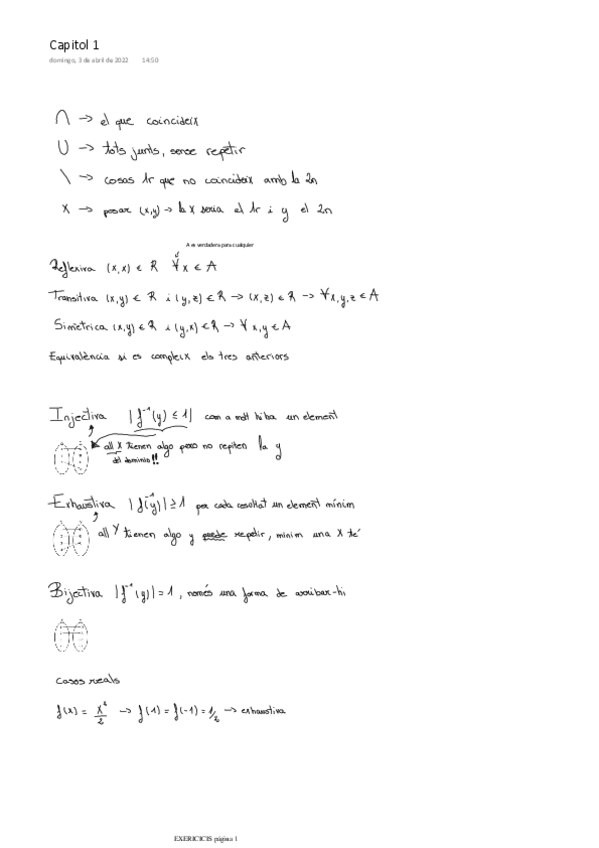 Capitol 1
domingo, 3 de abril de 2022 14:50
∩ → el que coincideix
∪ → tots junts, sense repetir
\ → cosas 1r que no coincideix amb la 2n
x → posar (x,y) → la x seria el 1r i y el 2n
A es verdadera para cualquier
Reflexiva (x,x) ∈ R ∀x ∈ A
Transitiva (x,y) ∈ R i (y,z) ∈ R → (x,z) ∈ R → ∀x,y,z ∈ A
Simètrica (x,y) ∈ R i (y,x) ∈ R → ∀ x,y ∈ A
Equivalència si es compleix els tres anteriors
Injectiva |f⁻¹(y) ≤ 1| com a molt hi ha un element
all X tienen algo pero no repiten la y
del dominio!!
Exhaustiva |f⁻¹(y)| ≥ 1 per cada resultat un element mínim
all Y tienen algo y puede repetir, minim una X té
Bijectiva |f⁻¹(y)| = 1, només una forma de arribar-hi
Casos reals
f(x) = x²/2 → f(1) = f(-1) = 1/2 → exhaustiva
EXERICICIS página 1